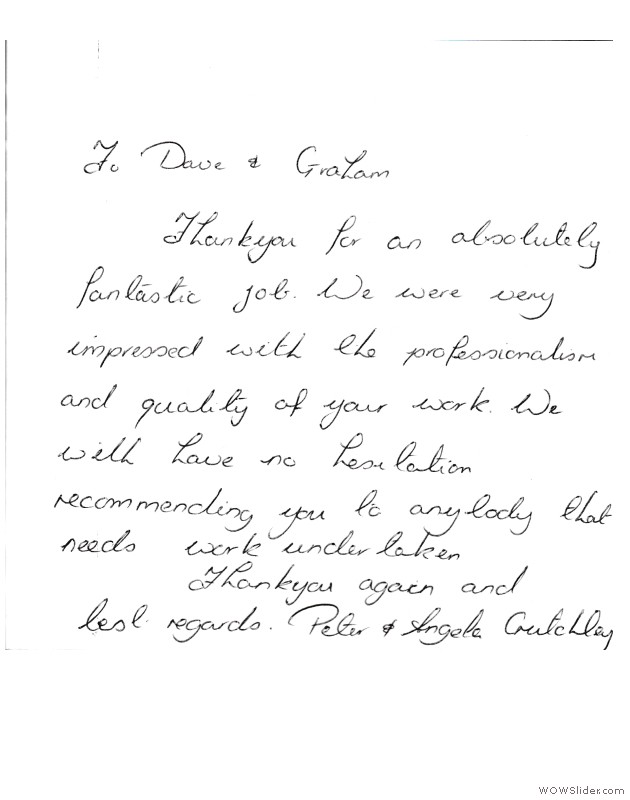 To Dave & Graham
Thankyou for an absolutely
fantastic job. We were very
impressed with the professionalism
and quality of your work. We
will have no hesitation
recommending you to anybody that
needs work undertaken
Thankyou again and
best regards. Peter & Angela Crutchley
WOWSlider.com